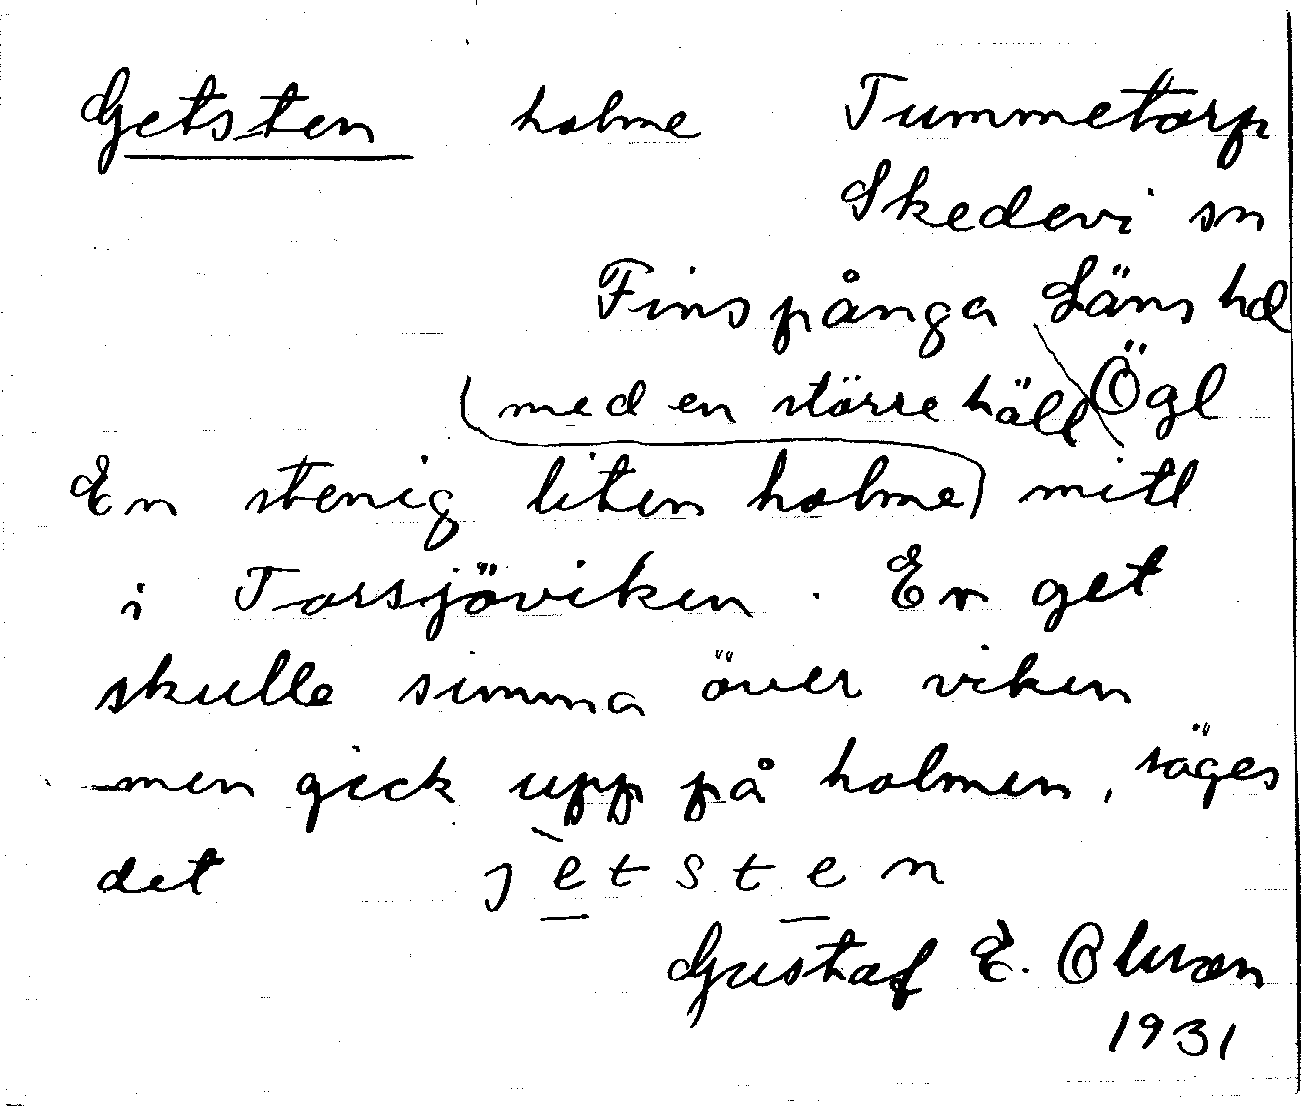 Getsten holme Tummetorp
Skedevi sn
Finspånga Läns hd
(med en större häll Ögl
En stenig liten holme) mitt
i Torsjöviken. En get
skulle simma över viken
men gick upp på holmen, säges
det jètsten
Gustaf E. Olsson
1931